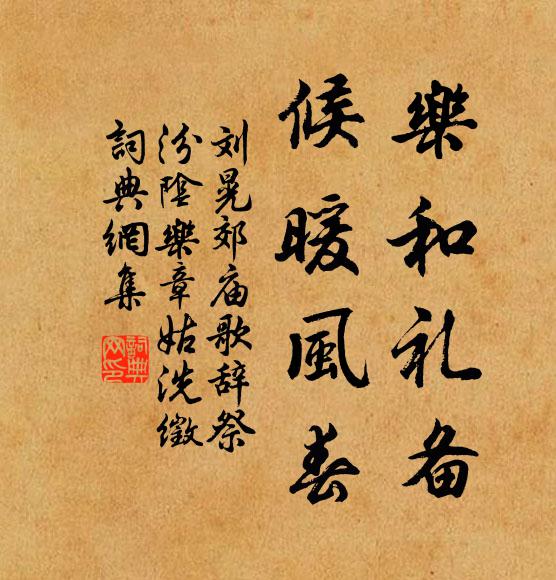 樂和礼备
候暖風春
刘晃郊庙歌辞祭
汾陰樂章姑洗徵
詞典網集
詞典
网印